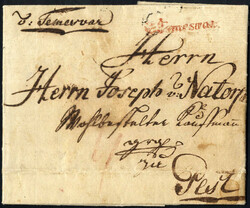 v: Temesvar
Temesvar
Herrn
Herrn Joseph v: Natorp
Wohlbestelter Kaufmann
zu
Pest